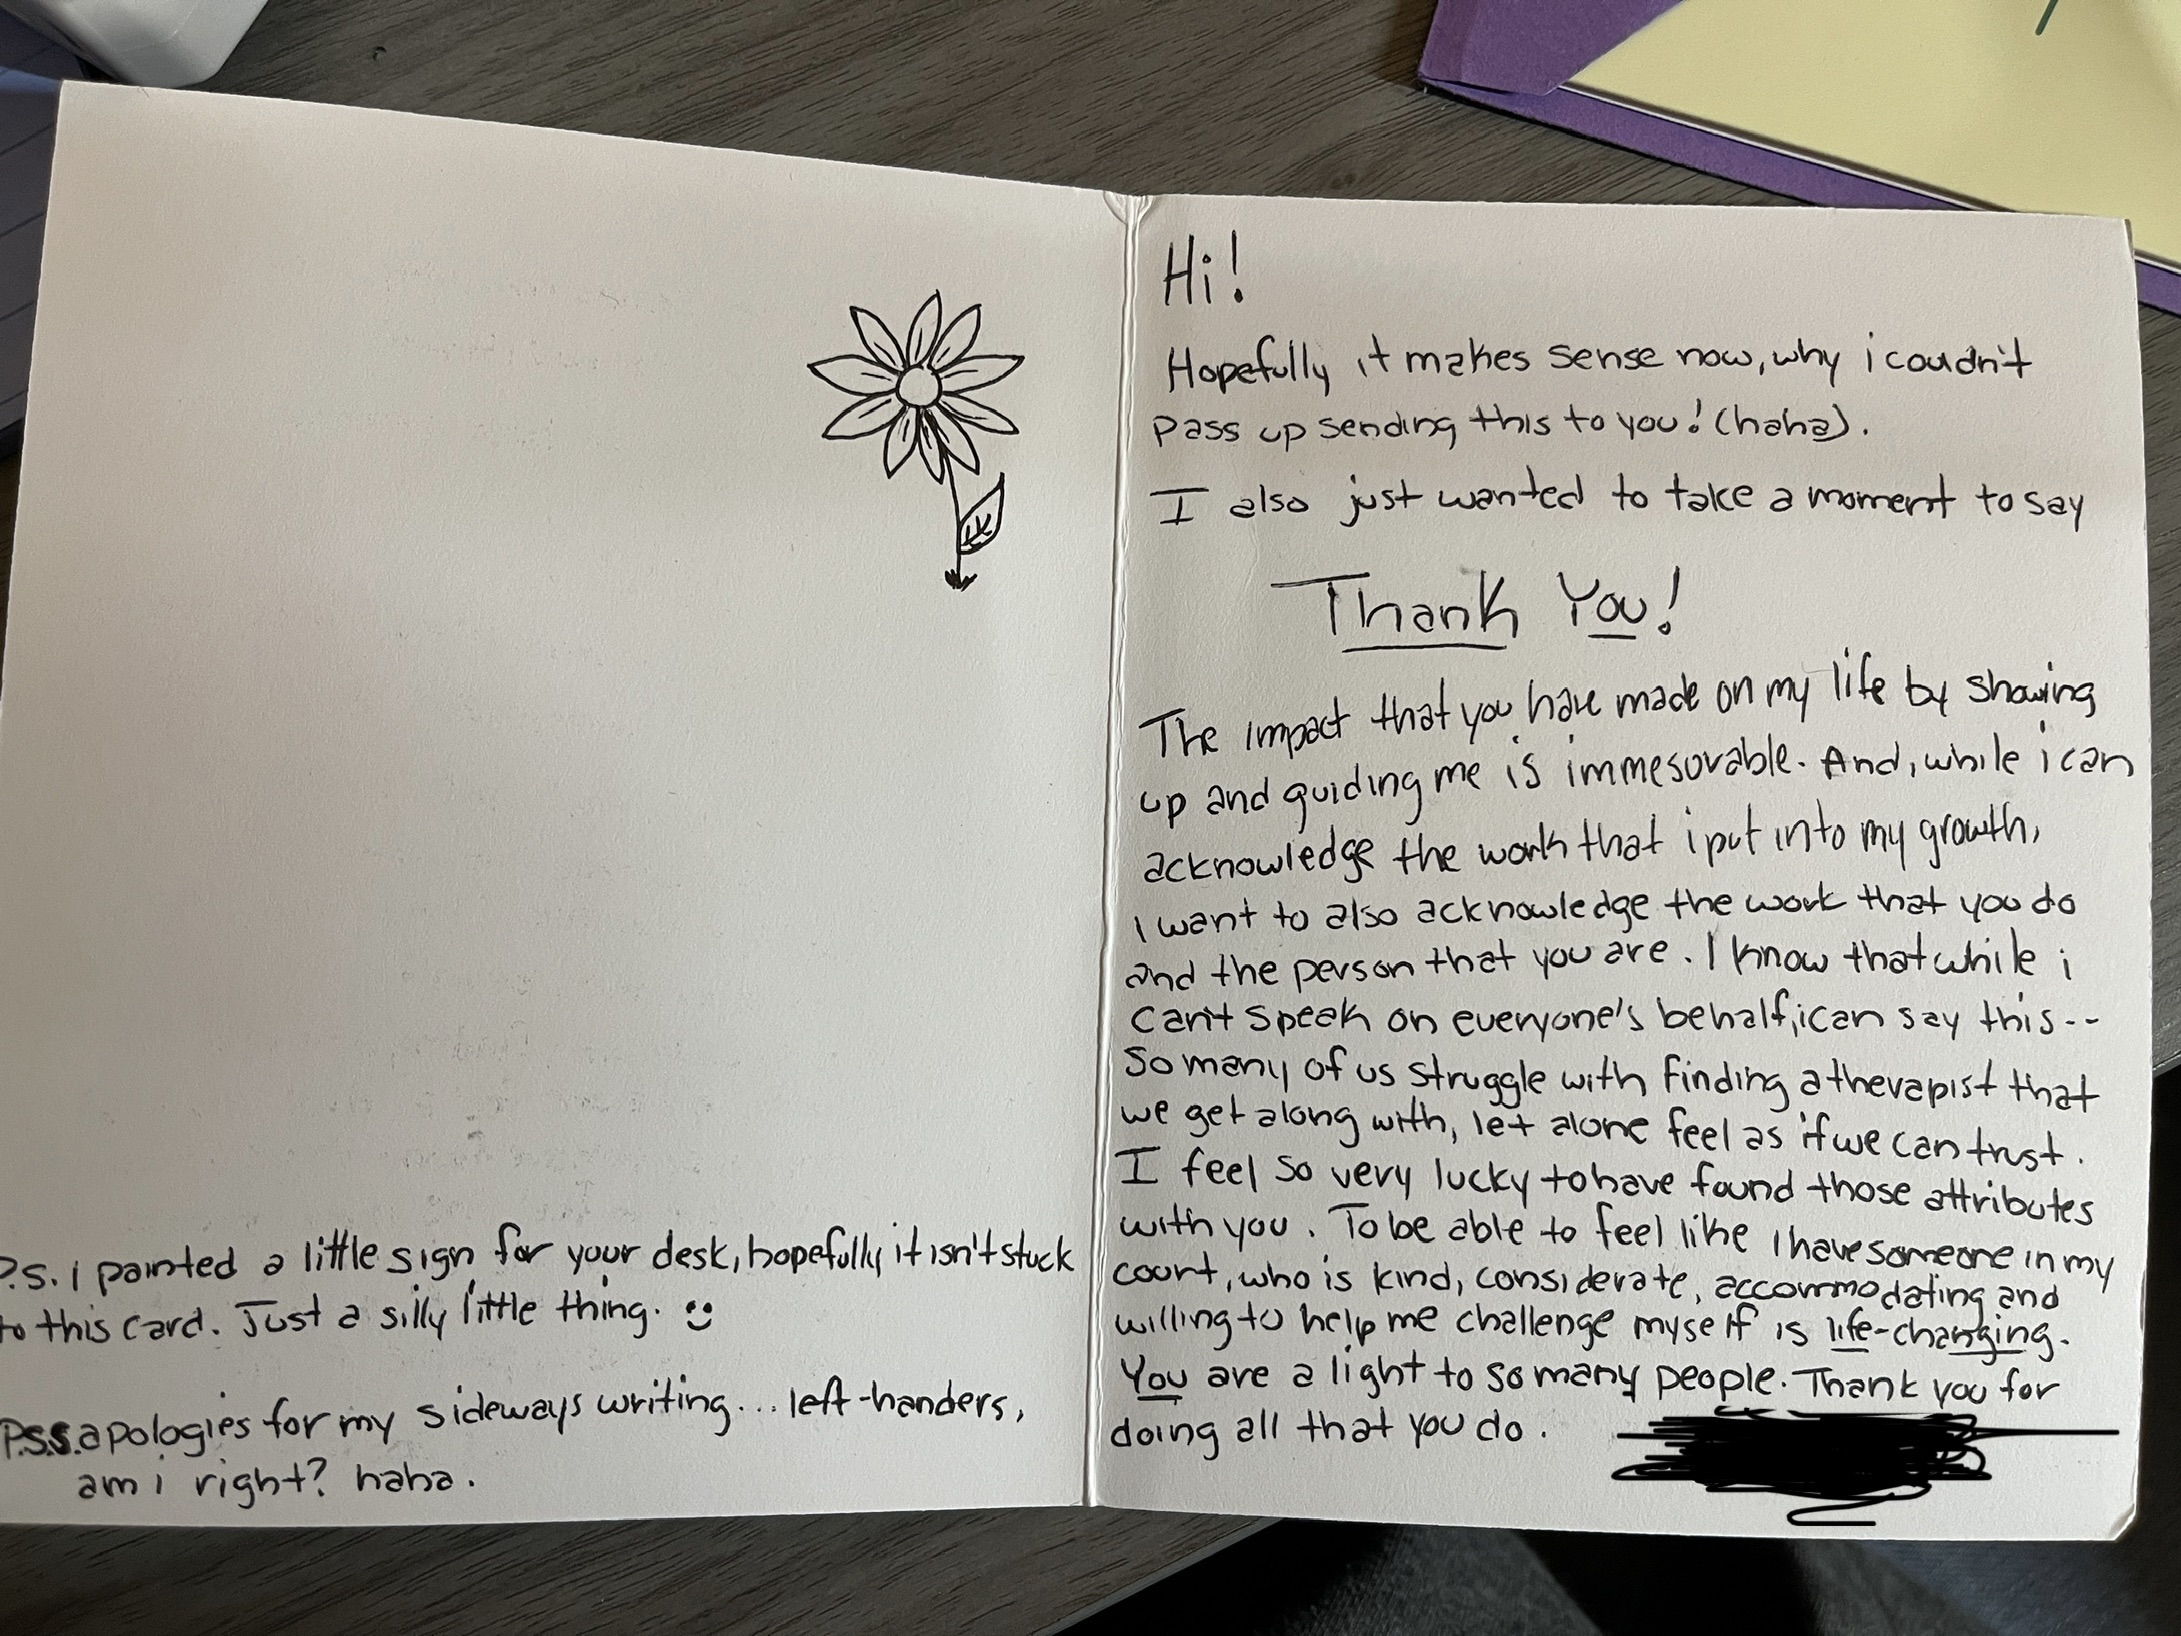 P.s. i painted a little sign for your desk, hopefully it isn't stuck
to this card. Just a silly little thing.
P.S.S. apologies for my sideways writing... left-handers,
am i right? haha.
Hi!
Hopefully it makes sense now, why i couldn't
pass up sending this to you! (haha).
I also just wanted to take a moment to say
Thank You!
The impact that you have made on my life by showing
up and guiding me is immesurable. And, while i can
acknowledge the work that i put into my growth,
i want to also acknowledge the work that you do
and the person that you are. I know that while i
can't speak on everyone's behalf, i can say this--
So many of us struggle with finding a therapist that
we get along with, let alone feel as if we can trust.
I feel so very lucky to have found those attributes
with you. To be able to feel like i have someone in my
court, who is kind, considerate, accommodating and
willing to help me challenge myself is life-changing.
You are a light to so many people. Thank you for
doing all that you do.